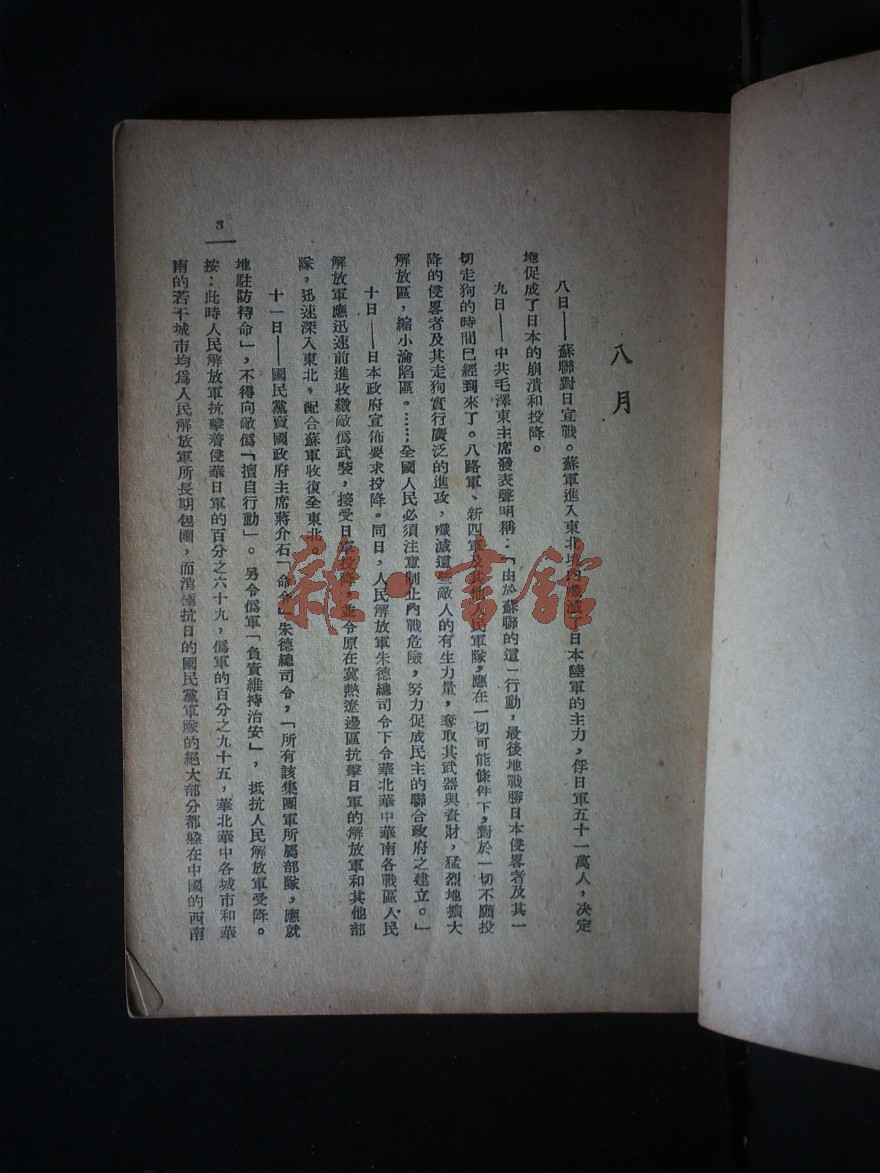 八月
八日——蘇聯對日宣戰。蘇軍進入東北境內殲滅了日本陸軍的主力，俘日軍五十一萬人，决定
地促成了日本的崩潰和投降。
九日——中共毛澤東主席發表聲明稱：「由於蘇聯的這一行動，最後地戰勝日本侵畧者及其一
切走狗的時間已經到來了。八路軍、新四軍及其他人民軍隊，應在一切可能條件下，對於一切不願投
降的侵畧者及其走狗實行廣泛的進攻，殲滅這些敵人的有生力量，奪取其武器與資財，猛烈地擴大
解放區，縮小淪陷區。……全國人民必須注意制止內戰危險，努力促成民主的聯合政府之建立。」
十日——日本政府宣佈要求投降。同日，人民解放軍朱德總司令下令華北華中華南各戰區人民
解放軍應迅速前進收繳敵僞武裝，接受日軍投降，並令原在冀熱遼邊區抗擊日軍的解放軍和其他部
隊，迅速深入東北，配合蘇軍收復全東北。
十一日——國民黨賣國政府主席蔣介石「命令」朱德總司令，「所有該集團軍所屬部隊，應就
地駐防待命」，不得向敵僞「擅自行動」。另令僞軍「負責維持治安」，抵抗人民解放軍受降。
按：此時人民解放軍抗擊着侵華日軍的百分之六十九，僞軍的百分之九十五，華北華中各城市和華
南的若干城市均爲人民解放軍所長期包圍，而消極抗日的國民黨軍隊的絕大部分都躲在中國的西南
3
雜·書館